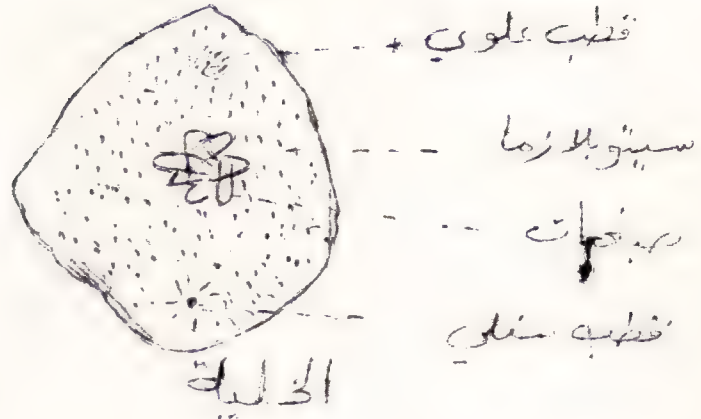 قطب علوي
سيتوبلازما
صبغيات
قطب سفلي
الخلية